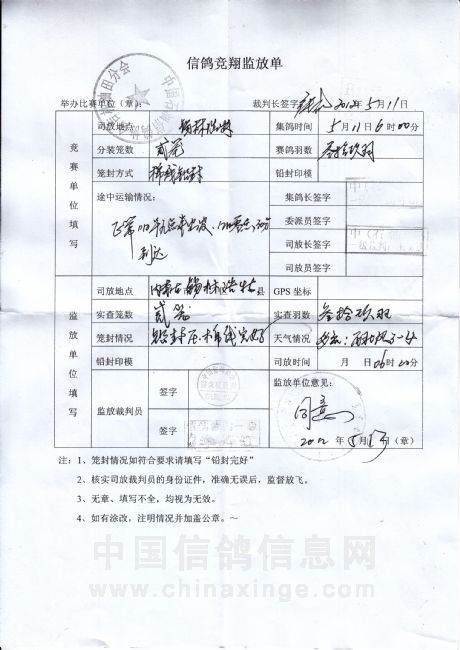 信鸽竞翔监放单
举办比赛单位（章）： 裁判长签字 2012年5月11日
竞赛单位填写
司放地点 集鸽时间 5月11日6时00分
分装笼数 贰笼 赛鸽羽数 叁拾玖羽
笼封方式 棉线铅封 铅封印模
途中运输情况： 集鸽长签字
委派员签字
司放长签字
司放员签字
到达
监放单位填写
司放地点 内蒙古锡林浩特县 GPS 坐标
实查笼数 贰笼 实查羽数 叁拾玖羽
笼封情况 铅封压棉线完好 天气情况
铅封印模 司放时间 月 日06时00分
监放裁判员 签字 监放单位意见：
同意
签字
2012年5月13日（章）
注：1、笼封情况如符合要求请填写“铅封完好”
2、核实司放裁判员的身份证件，准确无误后，监督放飞。
3、无章、填写不全，均视为无效。
4、如有涂改，注明情况并加盖公章。～
中国信鸽信息网
www.chinaxinge.com